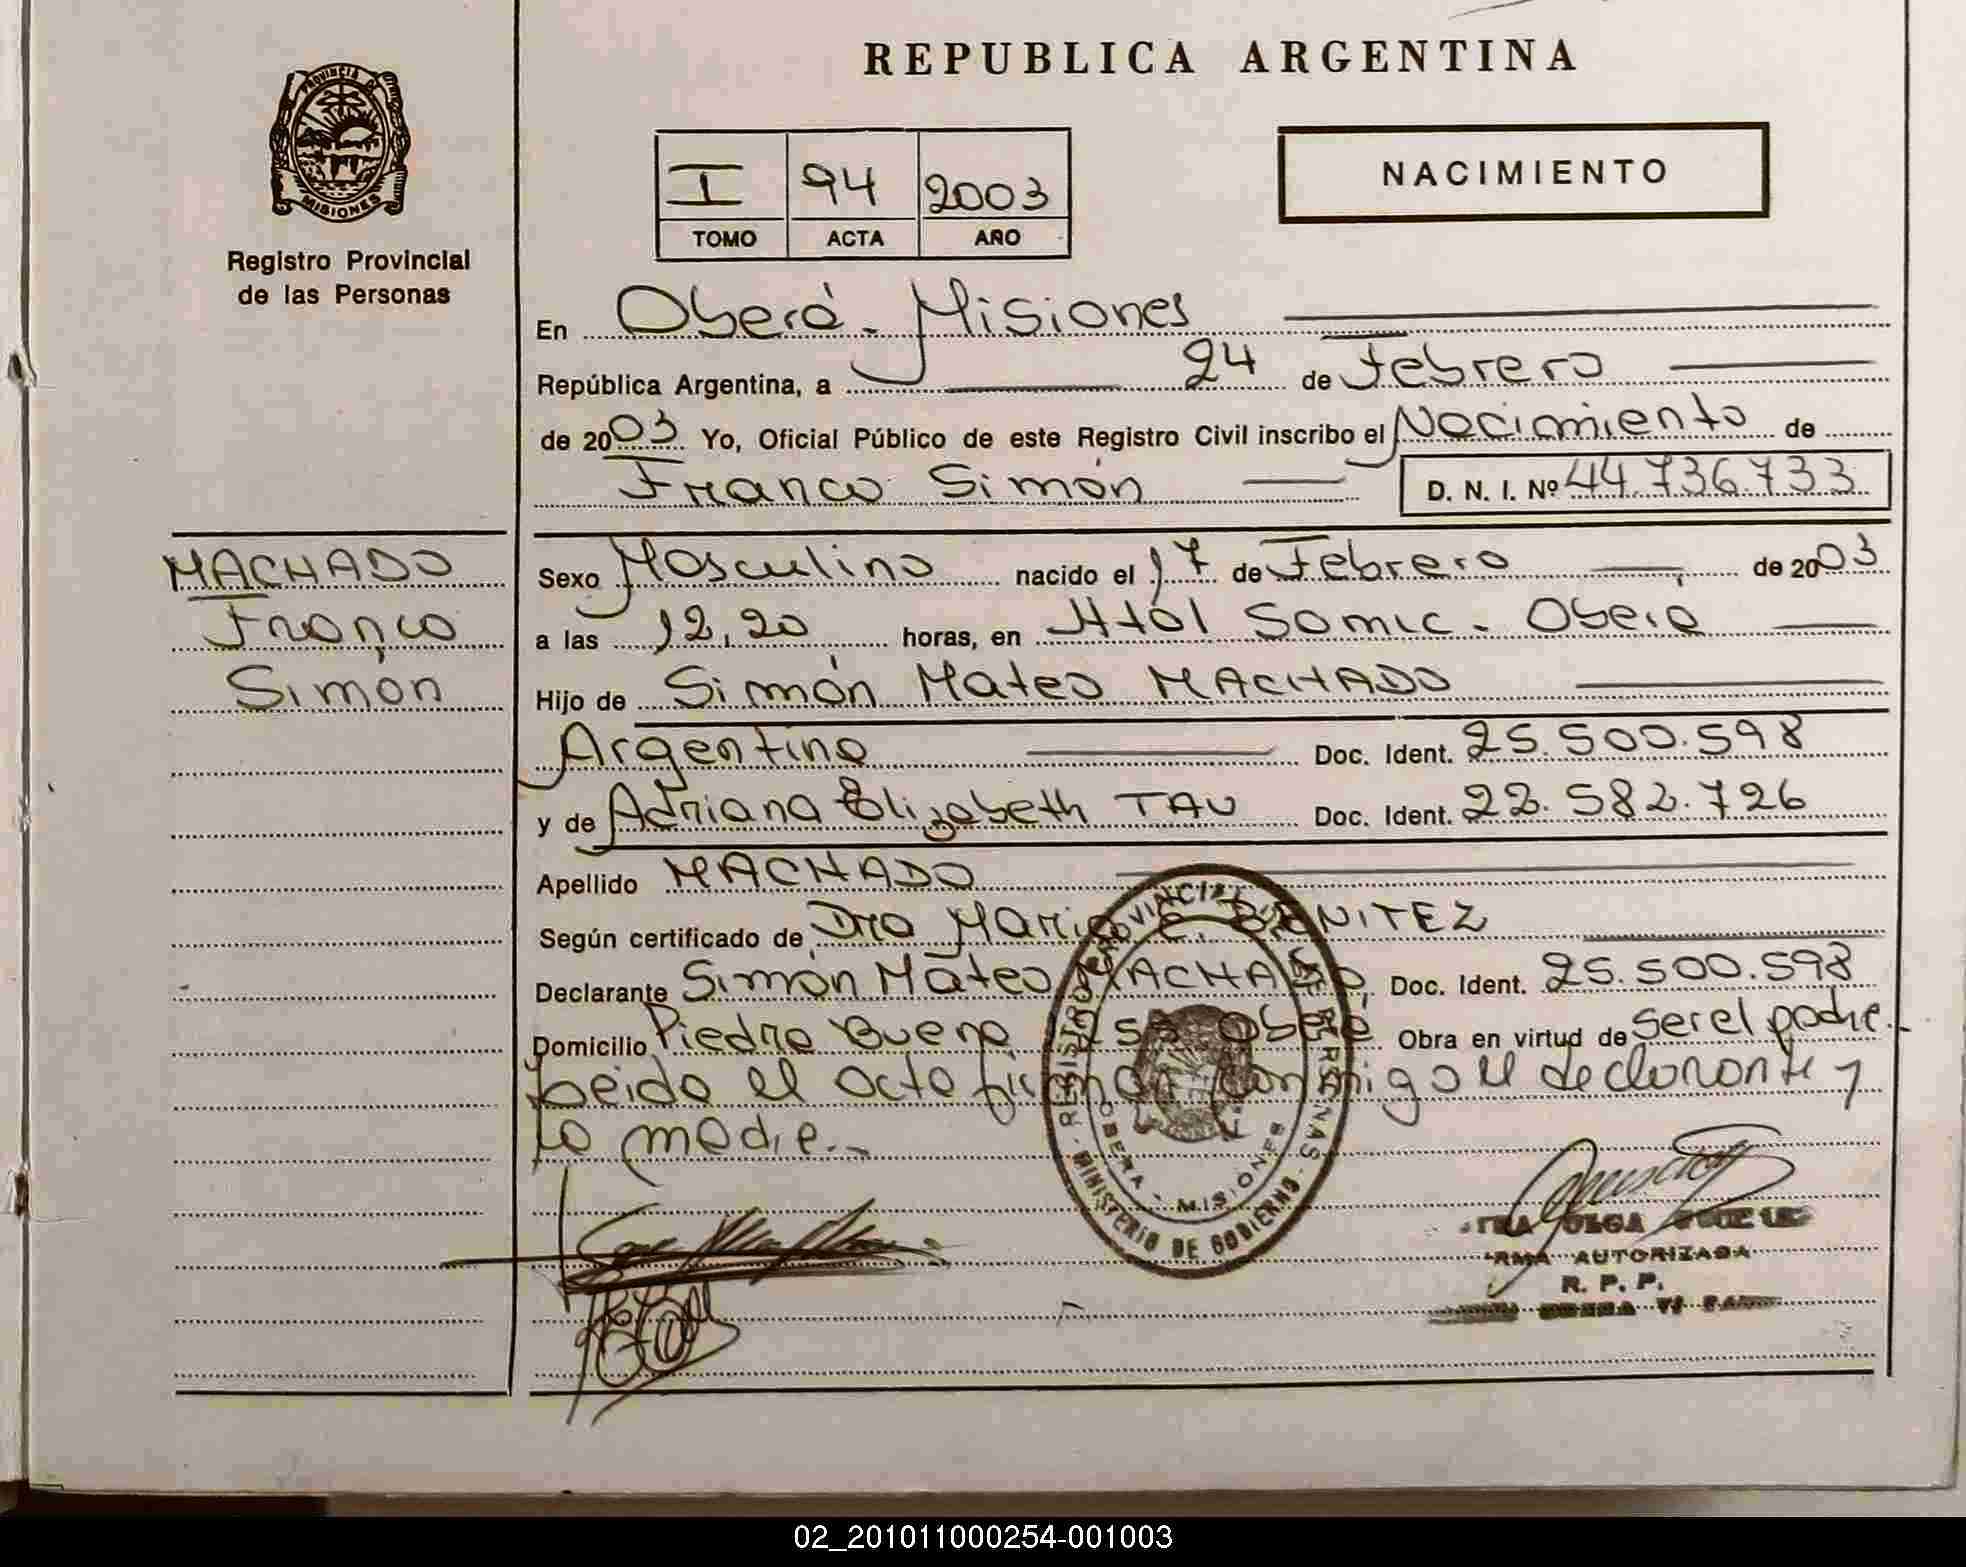 REPUBLICA ARGENTINA
PROVINCIA DE
MISIONES
Registro Provincial
de las Personas
I 94 2003
TOMO ACTA AÑO
NACIMIENTO
En Oberá - Misiones
República Argentina, a 24 de Febrero
de 2003 Yo, Oficial Público de este Registro Civil inscribo el Nacimiento de
Franco Simón D. N. I. Nº 44.736.733
MACHADO
Franco
Simón
Sexo Masculino nacido el 17 de Febrero de 2003
a las 12,20 horas, en Htal Samic - Oberá
Hijo de Simón Mateo MACHADO
Argentino Doc. Ident. 25.500.598
y de Adriana Elizabeth TAU Doc. Ident. 22.582.726
Apellido MACHADO
Según certificado de Dra Maria E. BENITEZ
Declarante Simón Mateo MACHADO, Doc. Ident. 25.500.598
Domicilio Piedra Buena Oberá Obra en virtud de ser el padre.-
Leida el acta firman conmigo el declarante y
la madre.-
REGISTRO PROVINCIAL DE LAS PERSONAS
OBERA - MISIONES
MINISTERIO DE GOBIERNO
OLGA
AUTORIZADA
R. P. P.
02_201011000254-001003